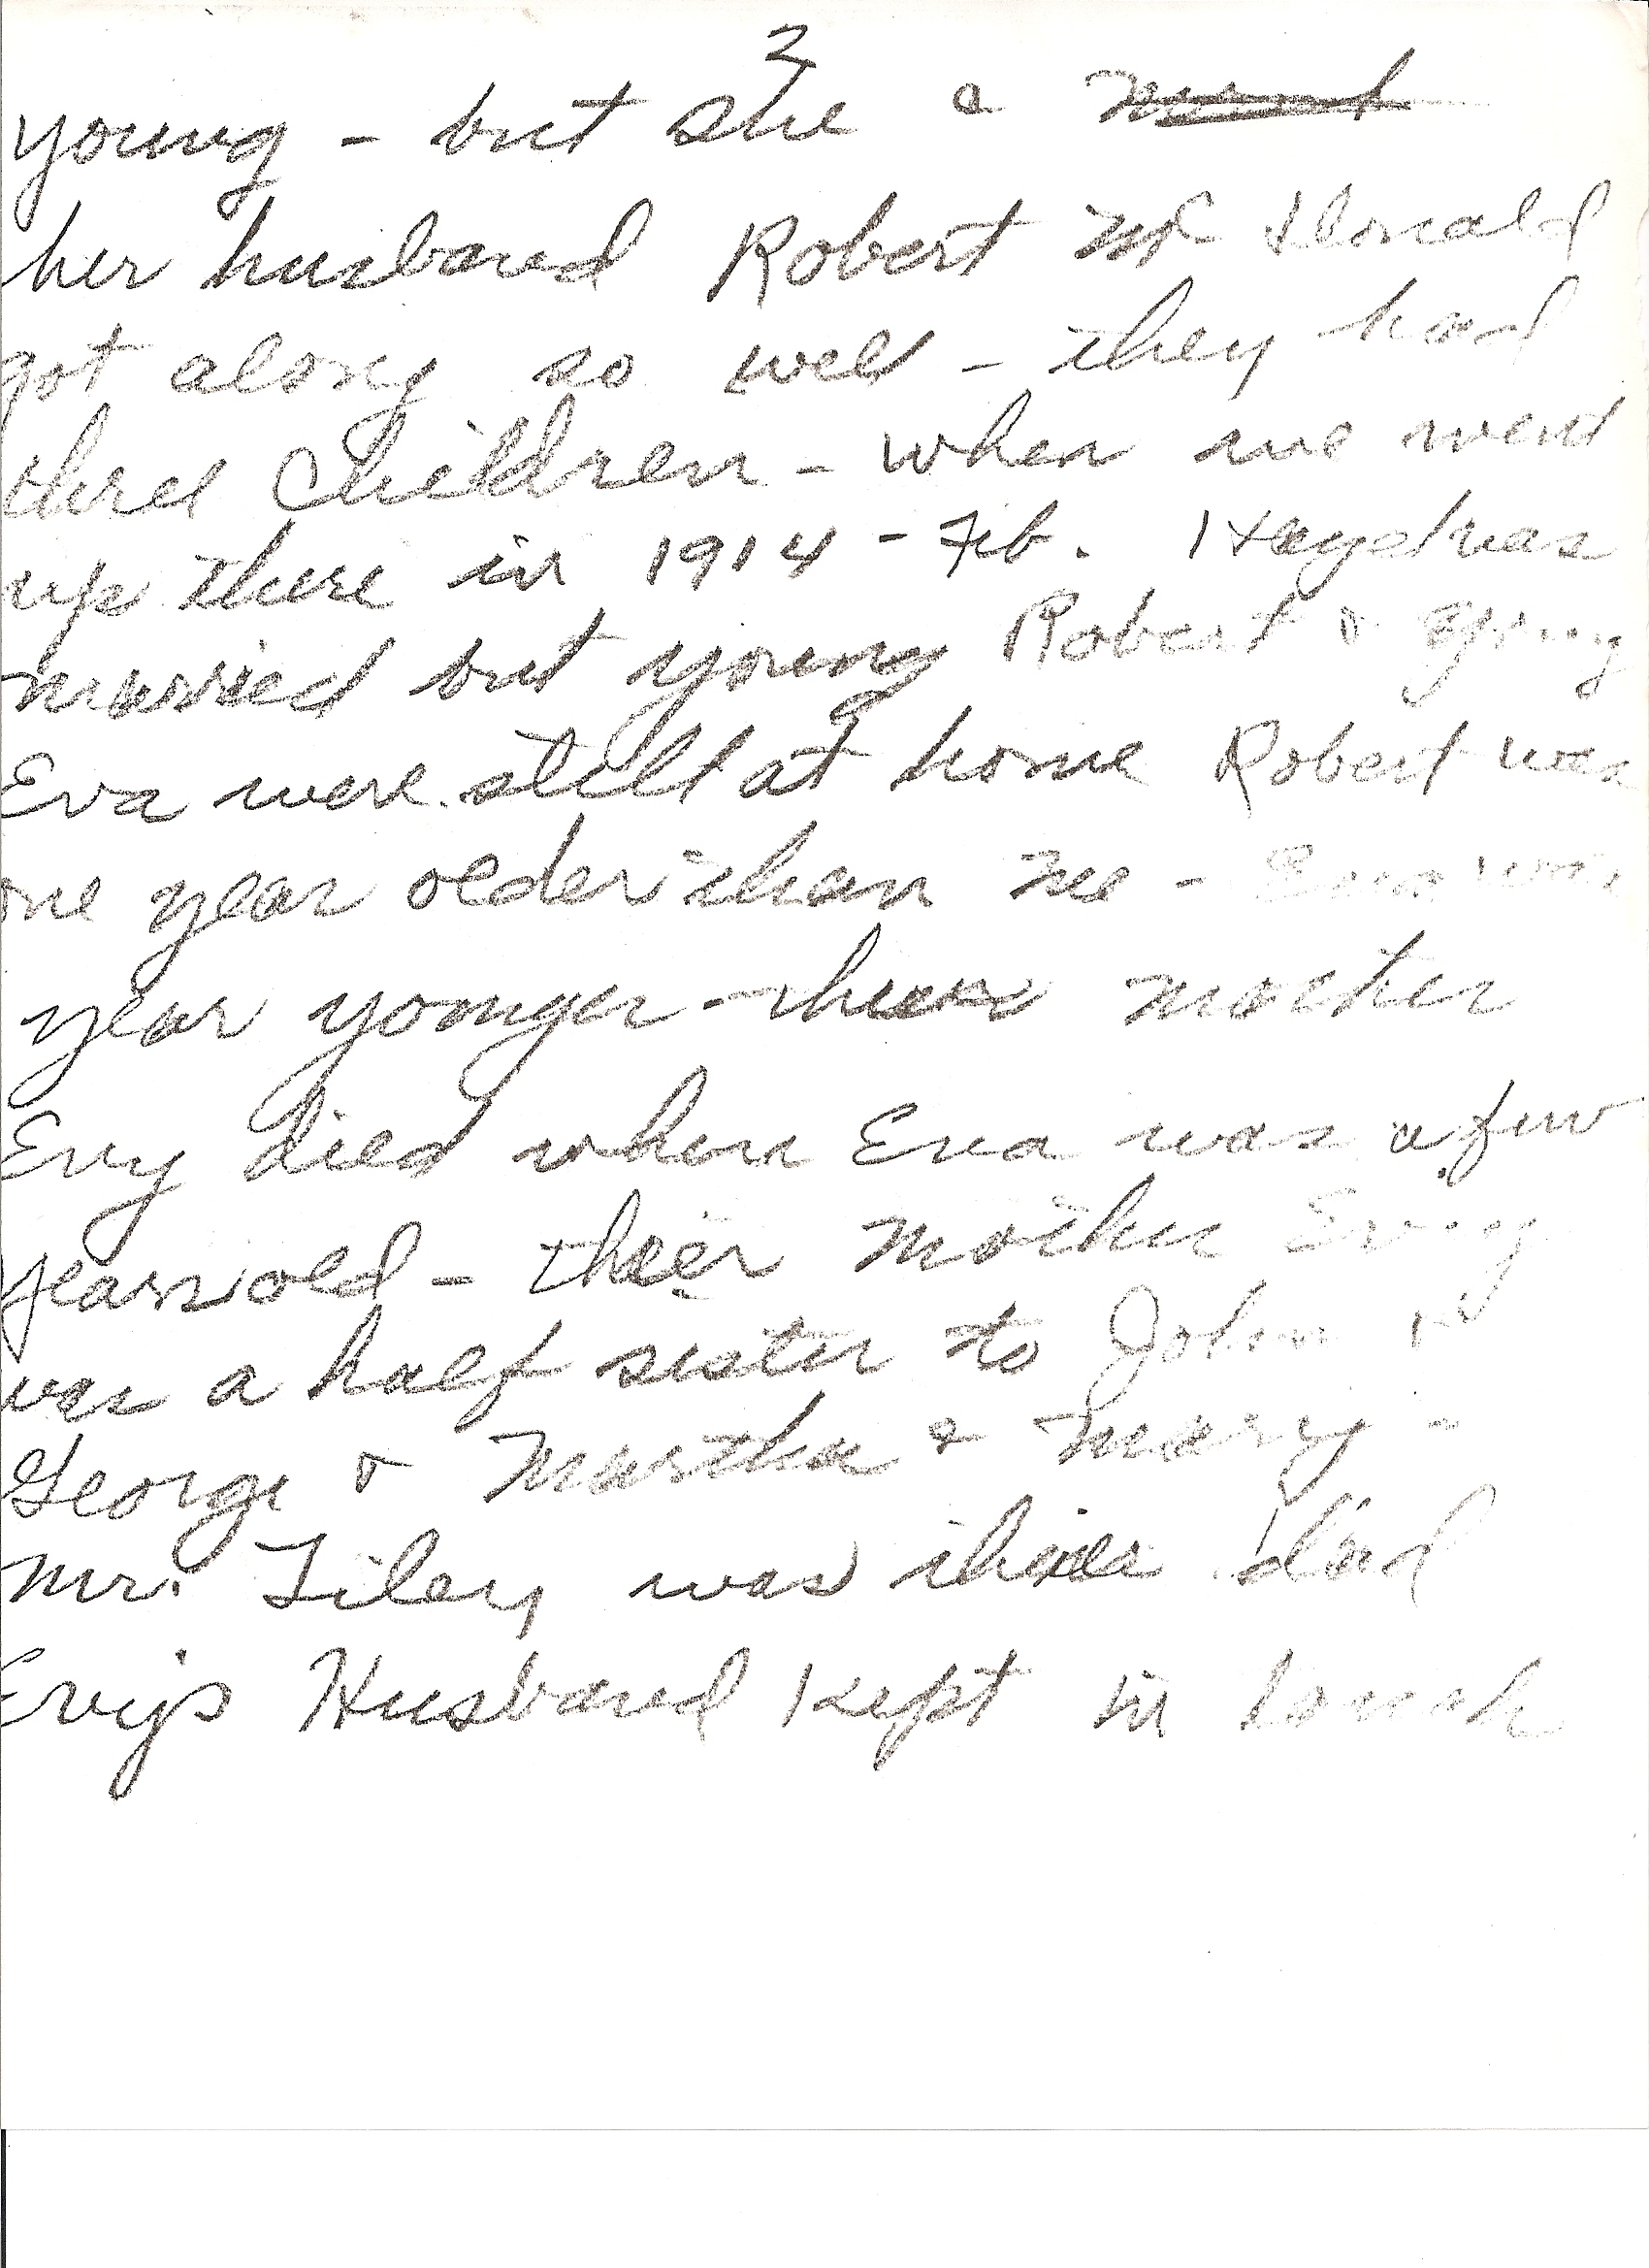 2
young - but she &
her husband Robert Mc Donald
got along so well - they had
three Children - when we went
up there in 1914 - Feb. Hazel was
married but young Robert & young
Eva were still at home Robert was
one year older than me - Eva was
year younger - their mother
Evy died when Eva was a few
years old - their mother Evy
was a half sister to John
George & Martha & Mary -
Mr. Tiley was their dad
Evys Husband kept in touch